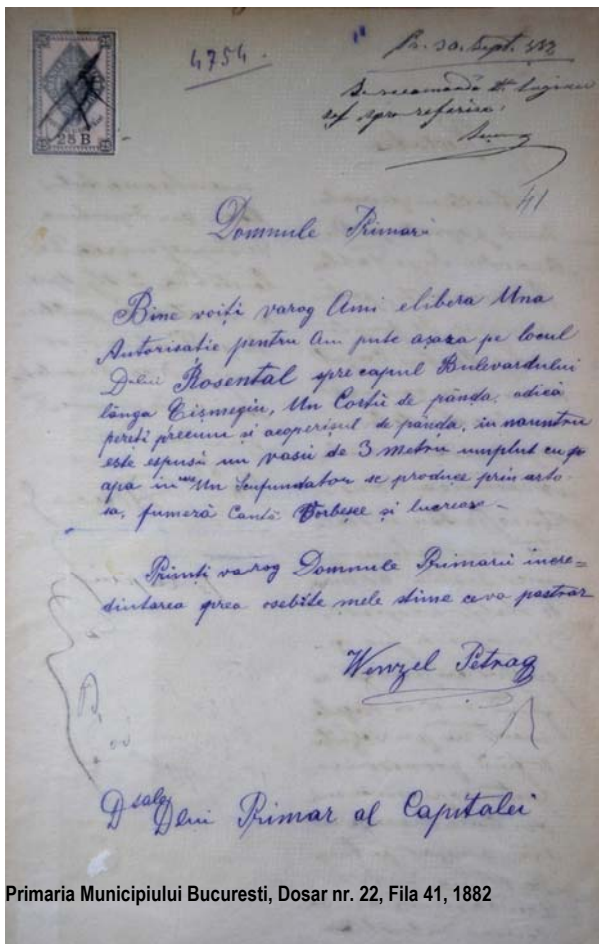 4754.
Pr. 30. Sept. 882
Se recomandă
sef spre referire.
25 B
41
Domnule Primari
Bine voiți varog Ami elibera Una
Autorisatie pentru Am pute așaza pe locul
Dlui Rosental spre capul Bulevardului
lânga Cișmegiu, Un Cortŭ de pânda, adică
pereti precum si acoperișul de panda, in nauntru
este espusŭ un vasŭ de 3 metru umplut cu
apa in Un Scufundator se produce prin arto
sa, fumeză Cantă Vorbesce și lucreas -
Primiti va rog Domnule Primarŭ incre=
dintarea prea osebite mele stime ce va pastrar
Wenzel Petrag
D sale Dlui Primar al Capitalei
Primaria Municipiului Bucuresti, Dosar nr. 22, Fila 41, 1882